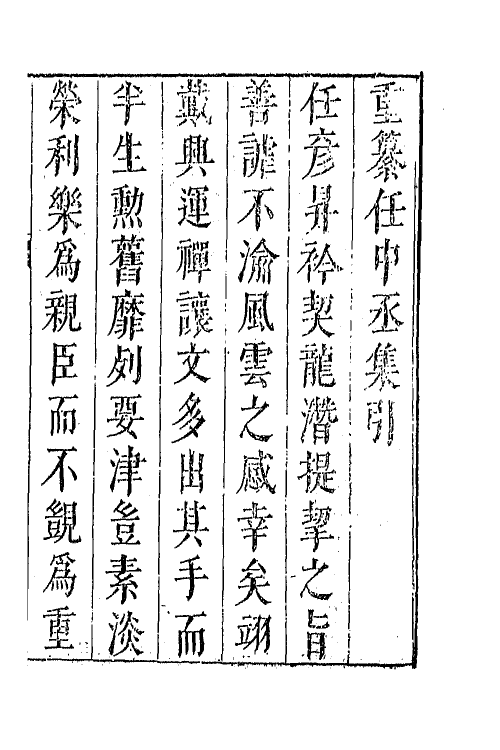 重纂任中丞集引
任彥昇衿契龍潛提挈之旨
善謔不渝風雲之感幸矣翊
戴興運禪讓文多出其手而
半生勲舊靡列要津豈素淡
榮利樂為親臣而不覬為重